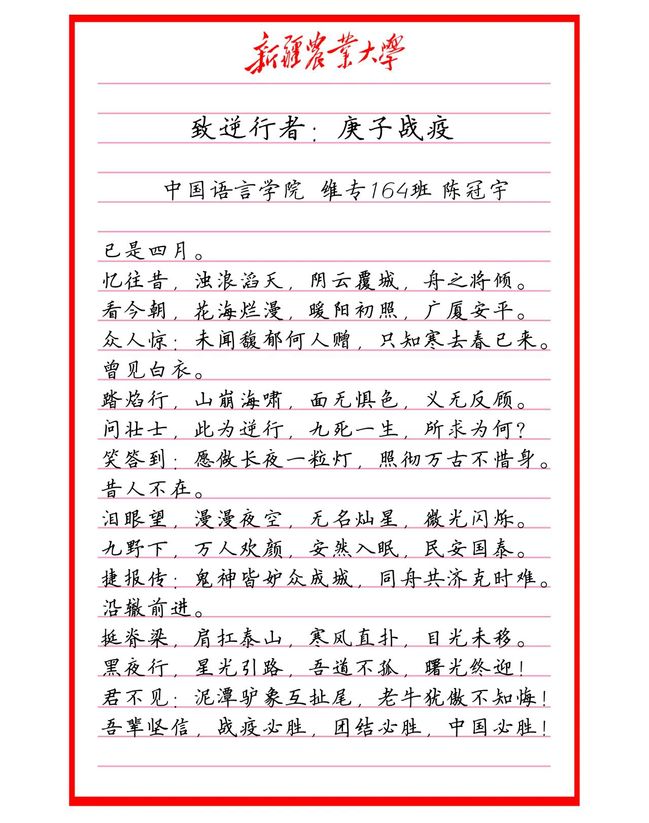 新疆农业大学
致逆行者：庚子战疫
中国语言学院 维专164班 陈冠宇
已是四月。
忆往昔，浊浪滔天，阴云覆城，舟之将倾。
看今朝，花海烂漫，暖阳初照，广厦安平。
众人惊：未闻馥郁何人赠，只知寒去春已来。
曾见白衣。
踏焰行，山崩海啸，面无惧色，义无反顾。
问壮士，此为逆行，九死一生，所求为何？
笑答到：愿做长夜一粒灯，照彻万古不惜身。
昔人不在。
泪眼望，漫漫夜空，无名灿星，微光闪烁。
九野下，万人欢颜，安然入眠，民安国泰。
捷报传：鬼神皆妒众成城，同舟共济克时难。
沿辙前进。
挺脊梁，肩扛泰山，寒风直扑，目光未移。
黑夜行，星光引路，吾道不孤，曙光终迎！
君不见：泥潭驴象互扯尾，老牛犹傲不知悔！
吾辈坚信，战疫必胜，团结必胜，中国必胜！